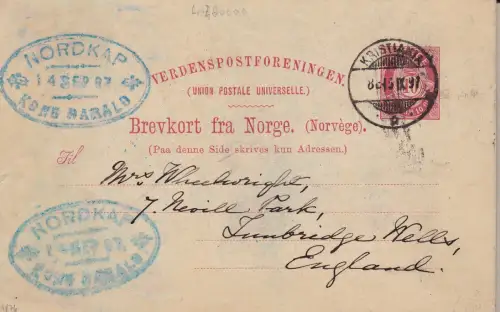 NORDKAP
14 SEP 97
KONG HARALD
VERDENSPOSTFORENINGEN.
(UNION POSTALE UNIVERSELLE.)
KRISTIANIA
Brevkort fra Norge. (Norvège).
(Paa denne Side skrives kun Adressen.)
Til
Mrs Wheelwright,
7. Nevill Park,
Tunbridge Wells,
England.
NORDKAP
14 SEP 97
KONG HARALD